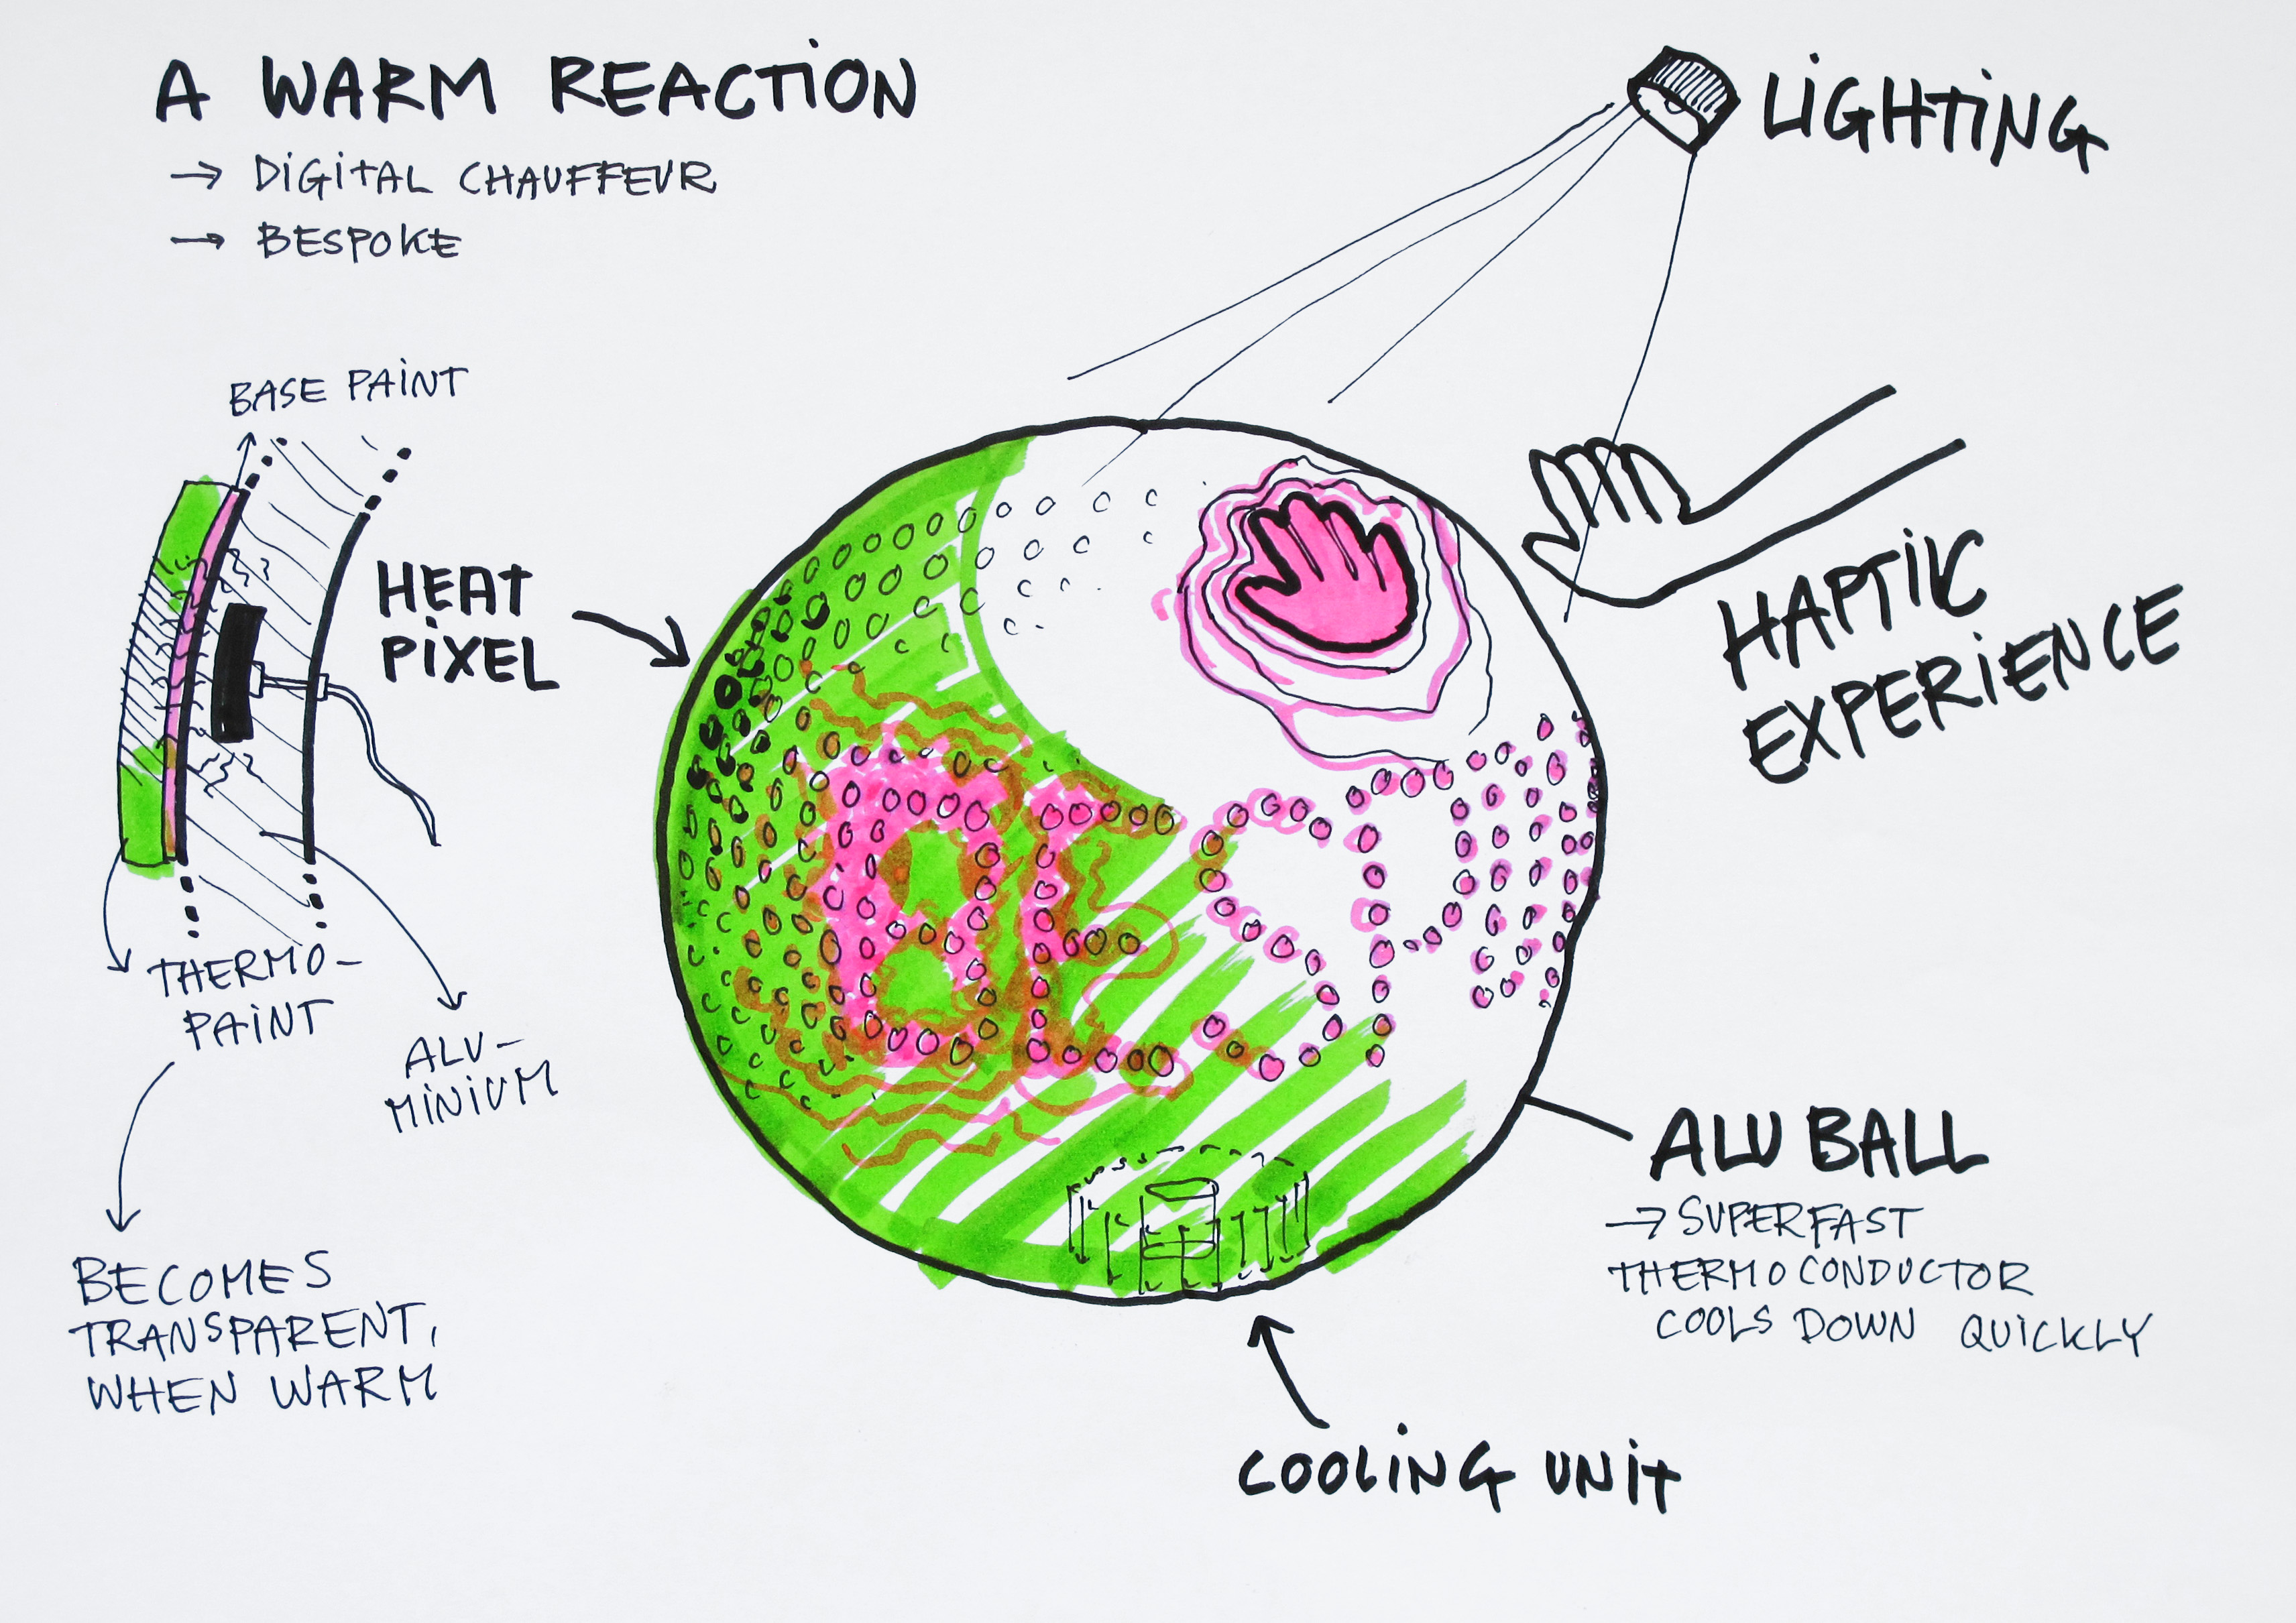 A WARM REACTION
→ DIGITAL CHAUFFEUR
→ BESPOKE
LIGHTING
BASE PAINT
HEAT
PIXEL
HAPTIC
EXPERIENCE
BESP
THERMO-
PAINT
ALU-
MINIUM
BECOMES
TRANSPARENT,
WHEN WARM
ALU BALL
→ SUPERFAST
THERMOCONDUCTOR
COOLS DOWN QUICKLY
COOLING UNIT